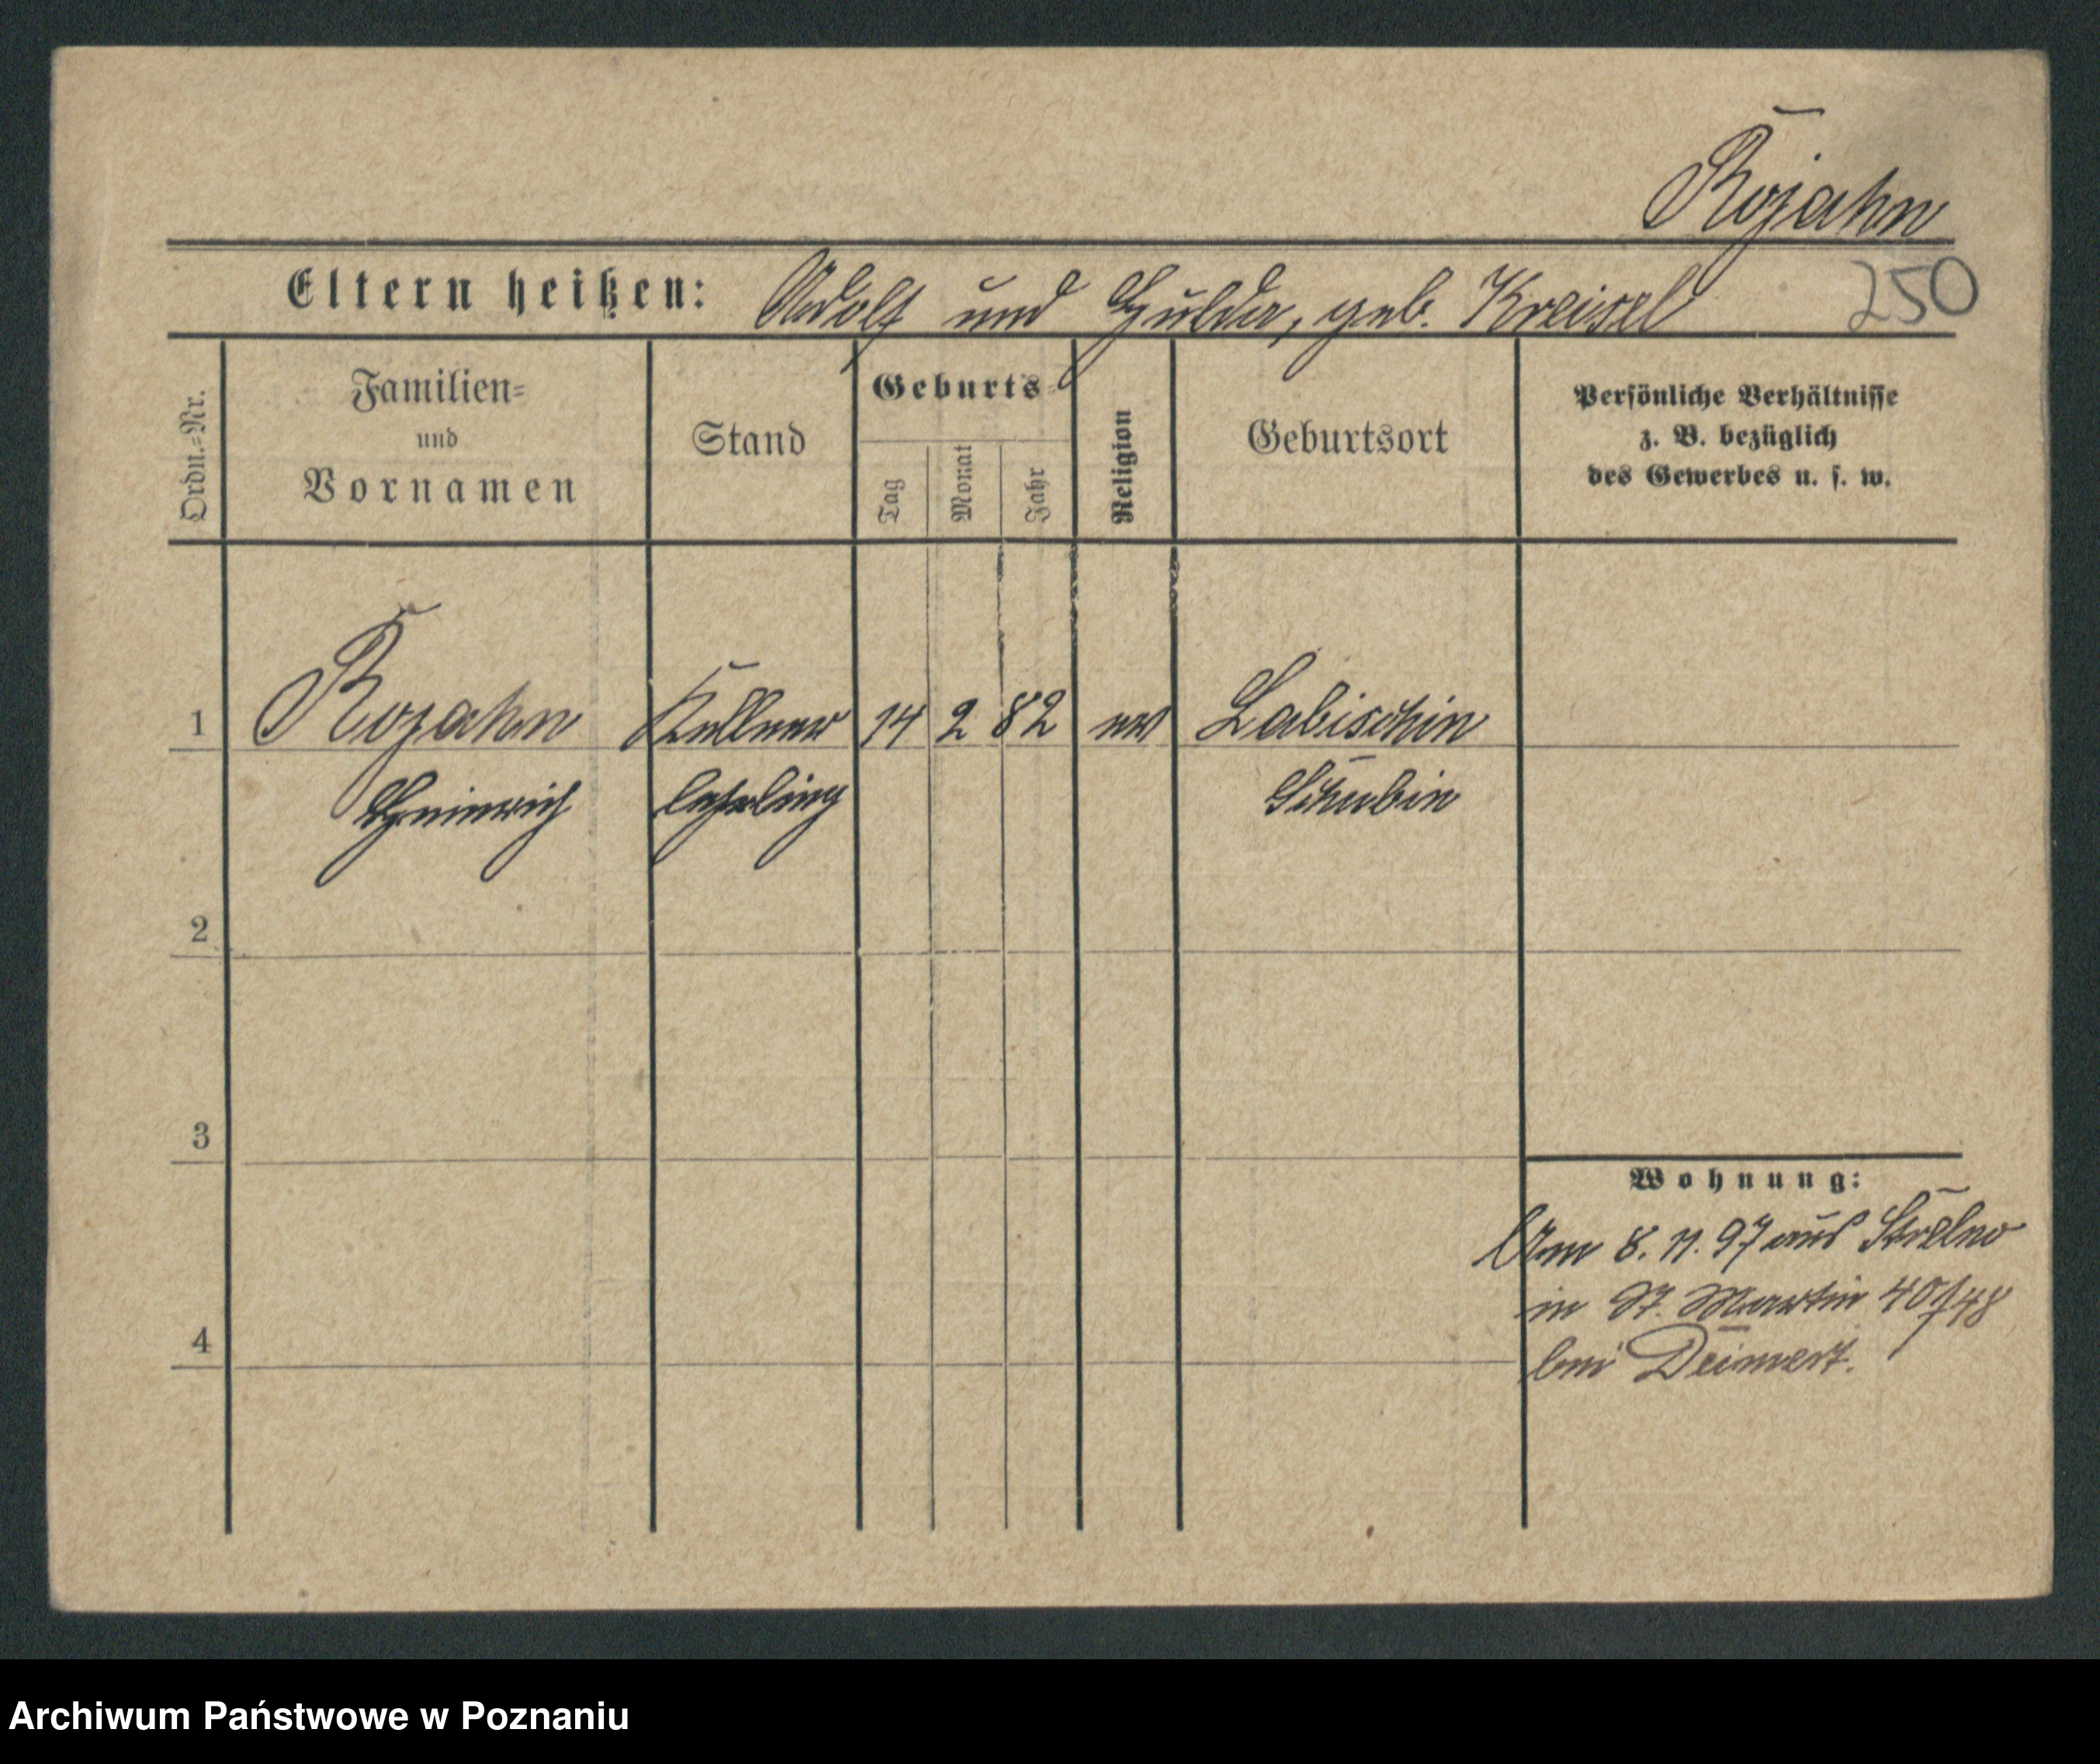 Rojahn
Eltern heißen: Adolf und Hulda, geb. Kreisel
250
Ordn.=Nr.
Familien=
und
Vornamen
Stand
Geburts=
Tag
Monat
Jahr
Religion
Geburtsort
Persönliche Verhältnisse
z. B. bezüglich
des Gewerbes u. s. w.
1 Rojahn Kellner 14 2 82 ev Labischin
Heinrich lehrling Schubin
2
3
Wohnung:
Am 8. 11. 97 aus Strelno
in St. Martin 40/48
4
bei
Archiwum Państwowe w Poznaniu